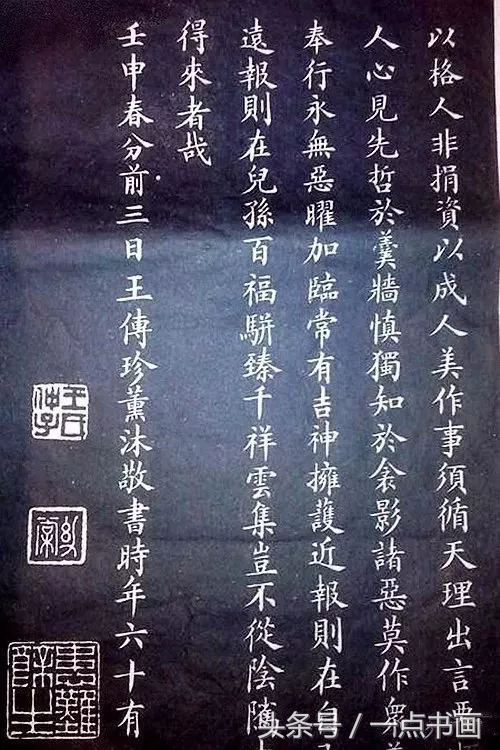 以格人非捐資以成人美作事須循天理出言要
人心見先哲於羹牆慎獨知於衾影諸惡莫作衆
奉行永無惡曜加臨常有吉神擁護近報則在自
遠報則在兒孫百福駢臻千祥雲集豈不從陰隲
得來者哉
壬申春分前三日王傳珍薰沐敬書時年六十有
头条号／一点书画